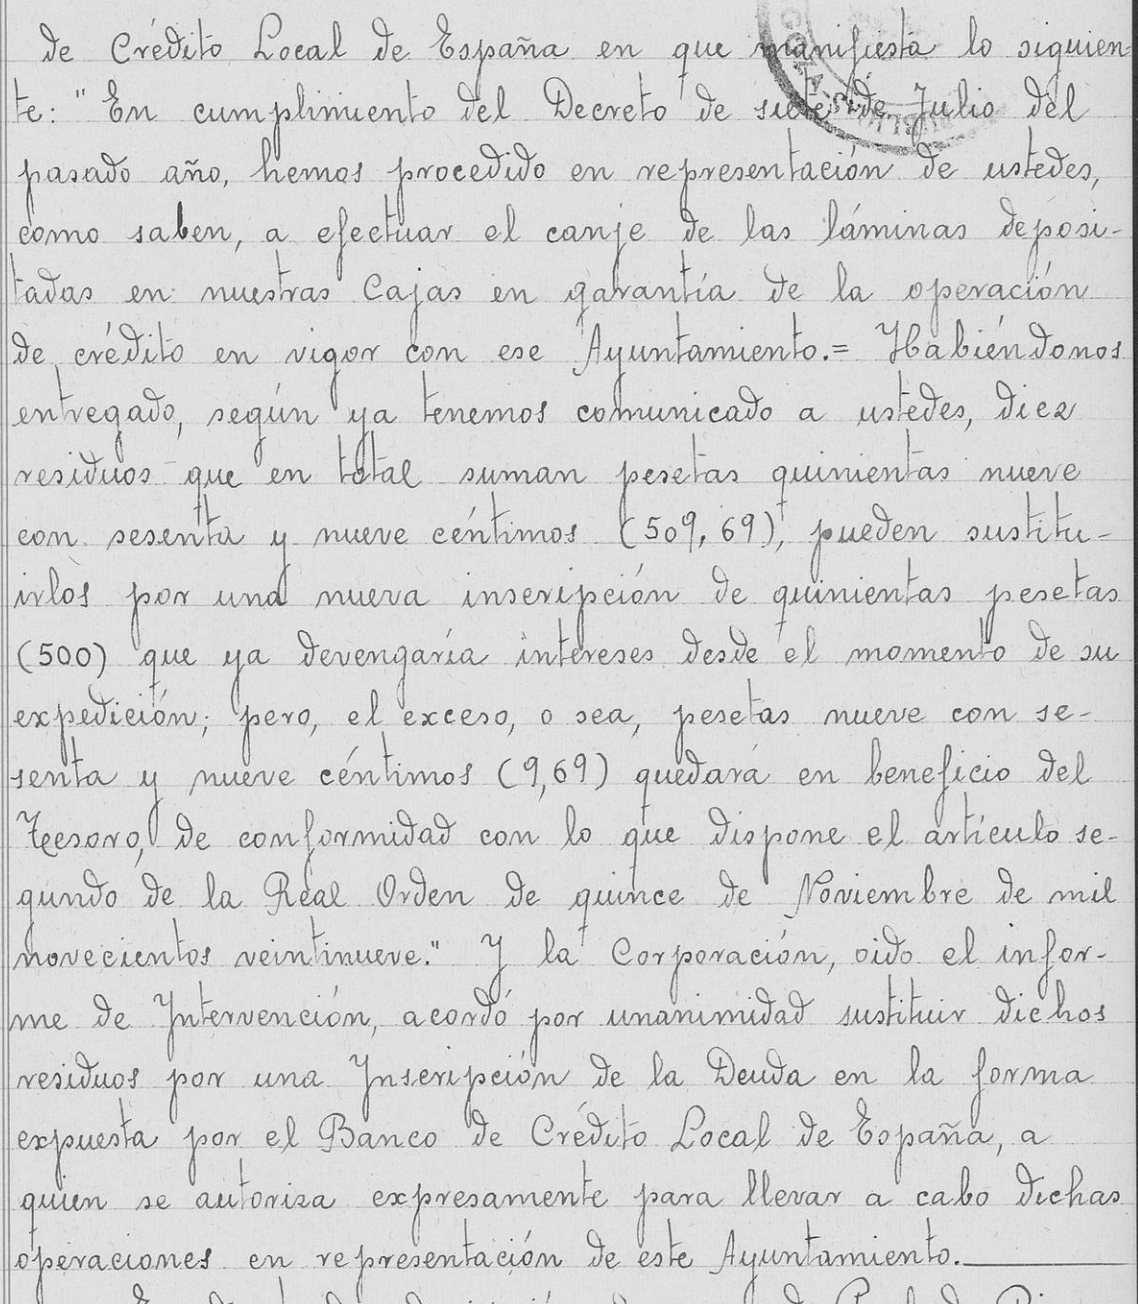 de Crédito Local de España en que manifiesta lo siguien-
te: "En cumplimiento del Decreto de siete de Julio del
pasado año, hemos procedido en representación de ustedes,
como saben, a efectuar el canje de las láminas deposi-
tadas en nuestras Cajas en garantía de la operación
de crédito en vigor con ese Ayuntamiento.= Habiéndonos
entregado, según ya tenemos comunicado a ustedes, diez
residuos que en total suman pesetas quinientas nueve
con sesenta y nueve céntimos (509,69), pueden sustitu-
irlos por una nueva inscripción de quinientas pesetas
(500) que ya devengaría intereses desde el momento de su
expedición; pero, el exceso, o sea, pesetas nueve con se-
senta y nueve céntimos (9,69) quedará en beneficio del
Tesoro, de conformidad con lo que dispone el artículo se-
gundo de la Real Orden de quince de Noviembre de mil
novecientos veintinueve." Y la Corporación, oido el infor-
me de Intervención, acordó por unanimidad sustituir dichos
residuos por una Inscripción de la Deuda en la forma
expuesta por el Banco de Crédito Local de España, a
quien se autoriza expresamente para llevar a cabo dichas
operaciones en representación de este Ayuntamiento.